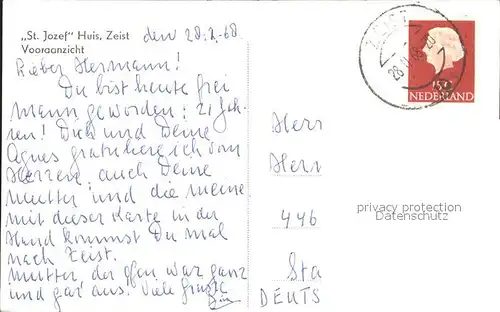 „St. Jozef" Huis, Zeist
Vooraanzicht
den 28.2.68
Lieber Hermann!
Du bist heute frei
mann geworden; 21 Jah-
ren! Dich und Deine
Agnes gratuliere ich von
Herzen, auch Deine
Mutter; und die meine
mit dieser Karte in der
Hand kommst Du mal
nach Zeist.
Mutter der Ofen war ganz
und gar aus! Viele Grüsse
ZEIST
15c
NEDERLAND
Herr
Herrn
446
Sta
DEUTS
privacy protection
Datenschutz